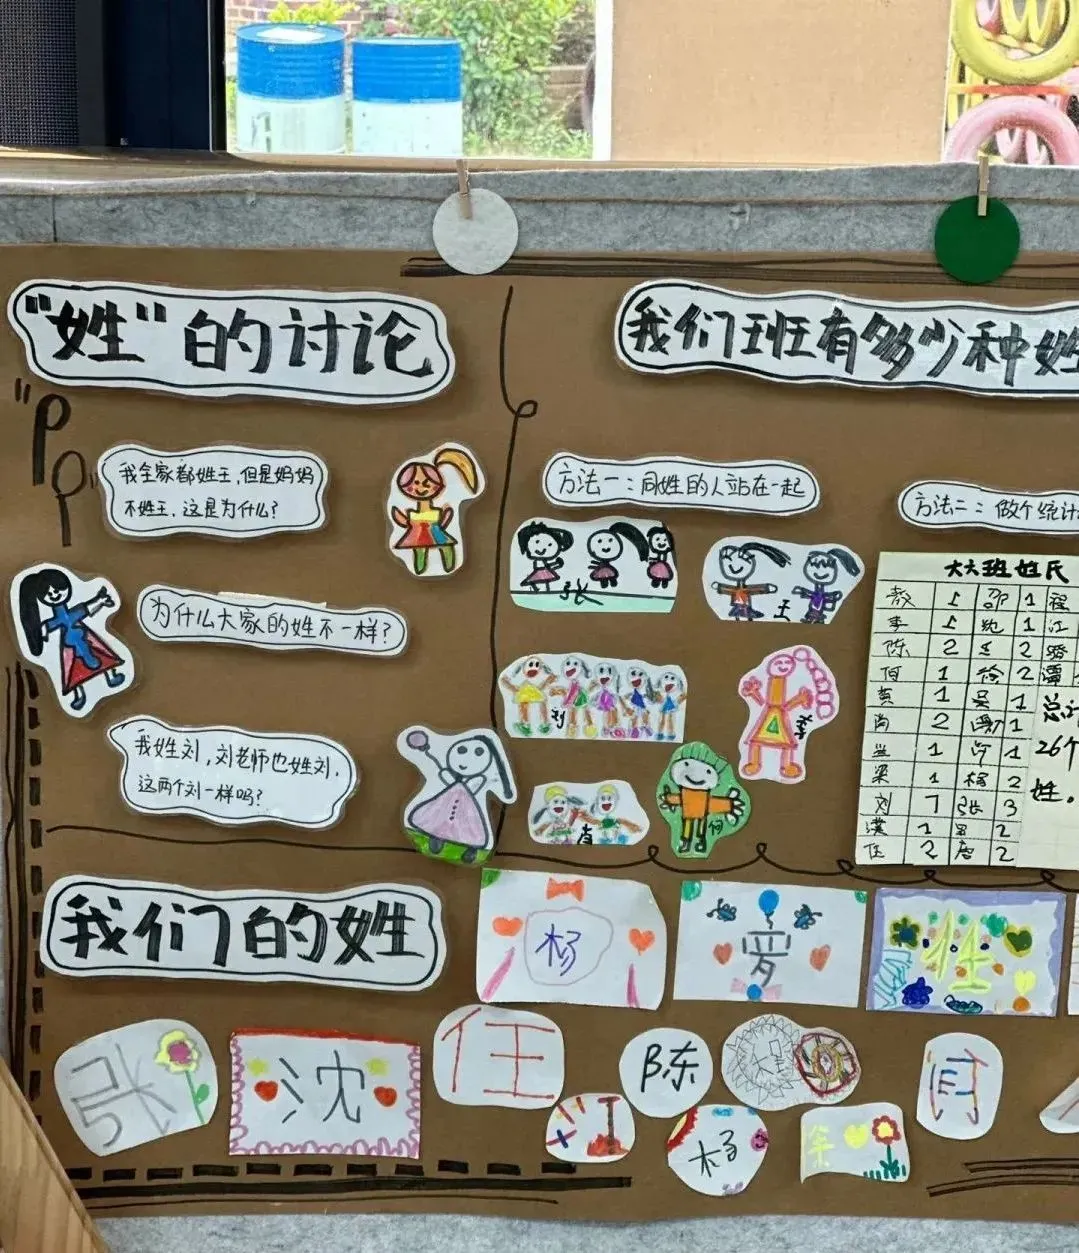 "姓"的讨论
我全家都姓王,但是妈妈
不姓王,这是为什么?
为什么大家的姓不一样?
我姓刘,刘老师也姓刘,
这两个刘一样吗?
我们班有多少种姓
方法一:同姓的人站在一起
张
王
刘
李
何
方法二:做个统计
大六班姓氏
1 邵 1 程
李 1 沈 1 江
陈 2 王 2
1 徐 2 谭
黄 1 吴 1
尚 2 谢 1
兰 1 许 1
梁 1 杨 2
刘 7 张 3
1 2
任 2 唐 2
总计
26个
姓。
我们的姓
杨
罗
张
沈
任
陈
江
杨